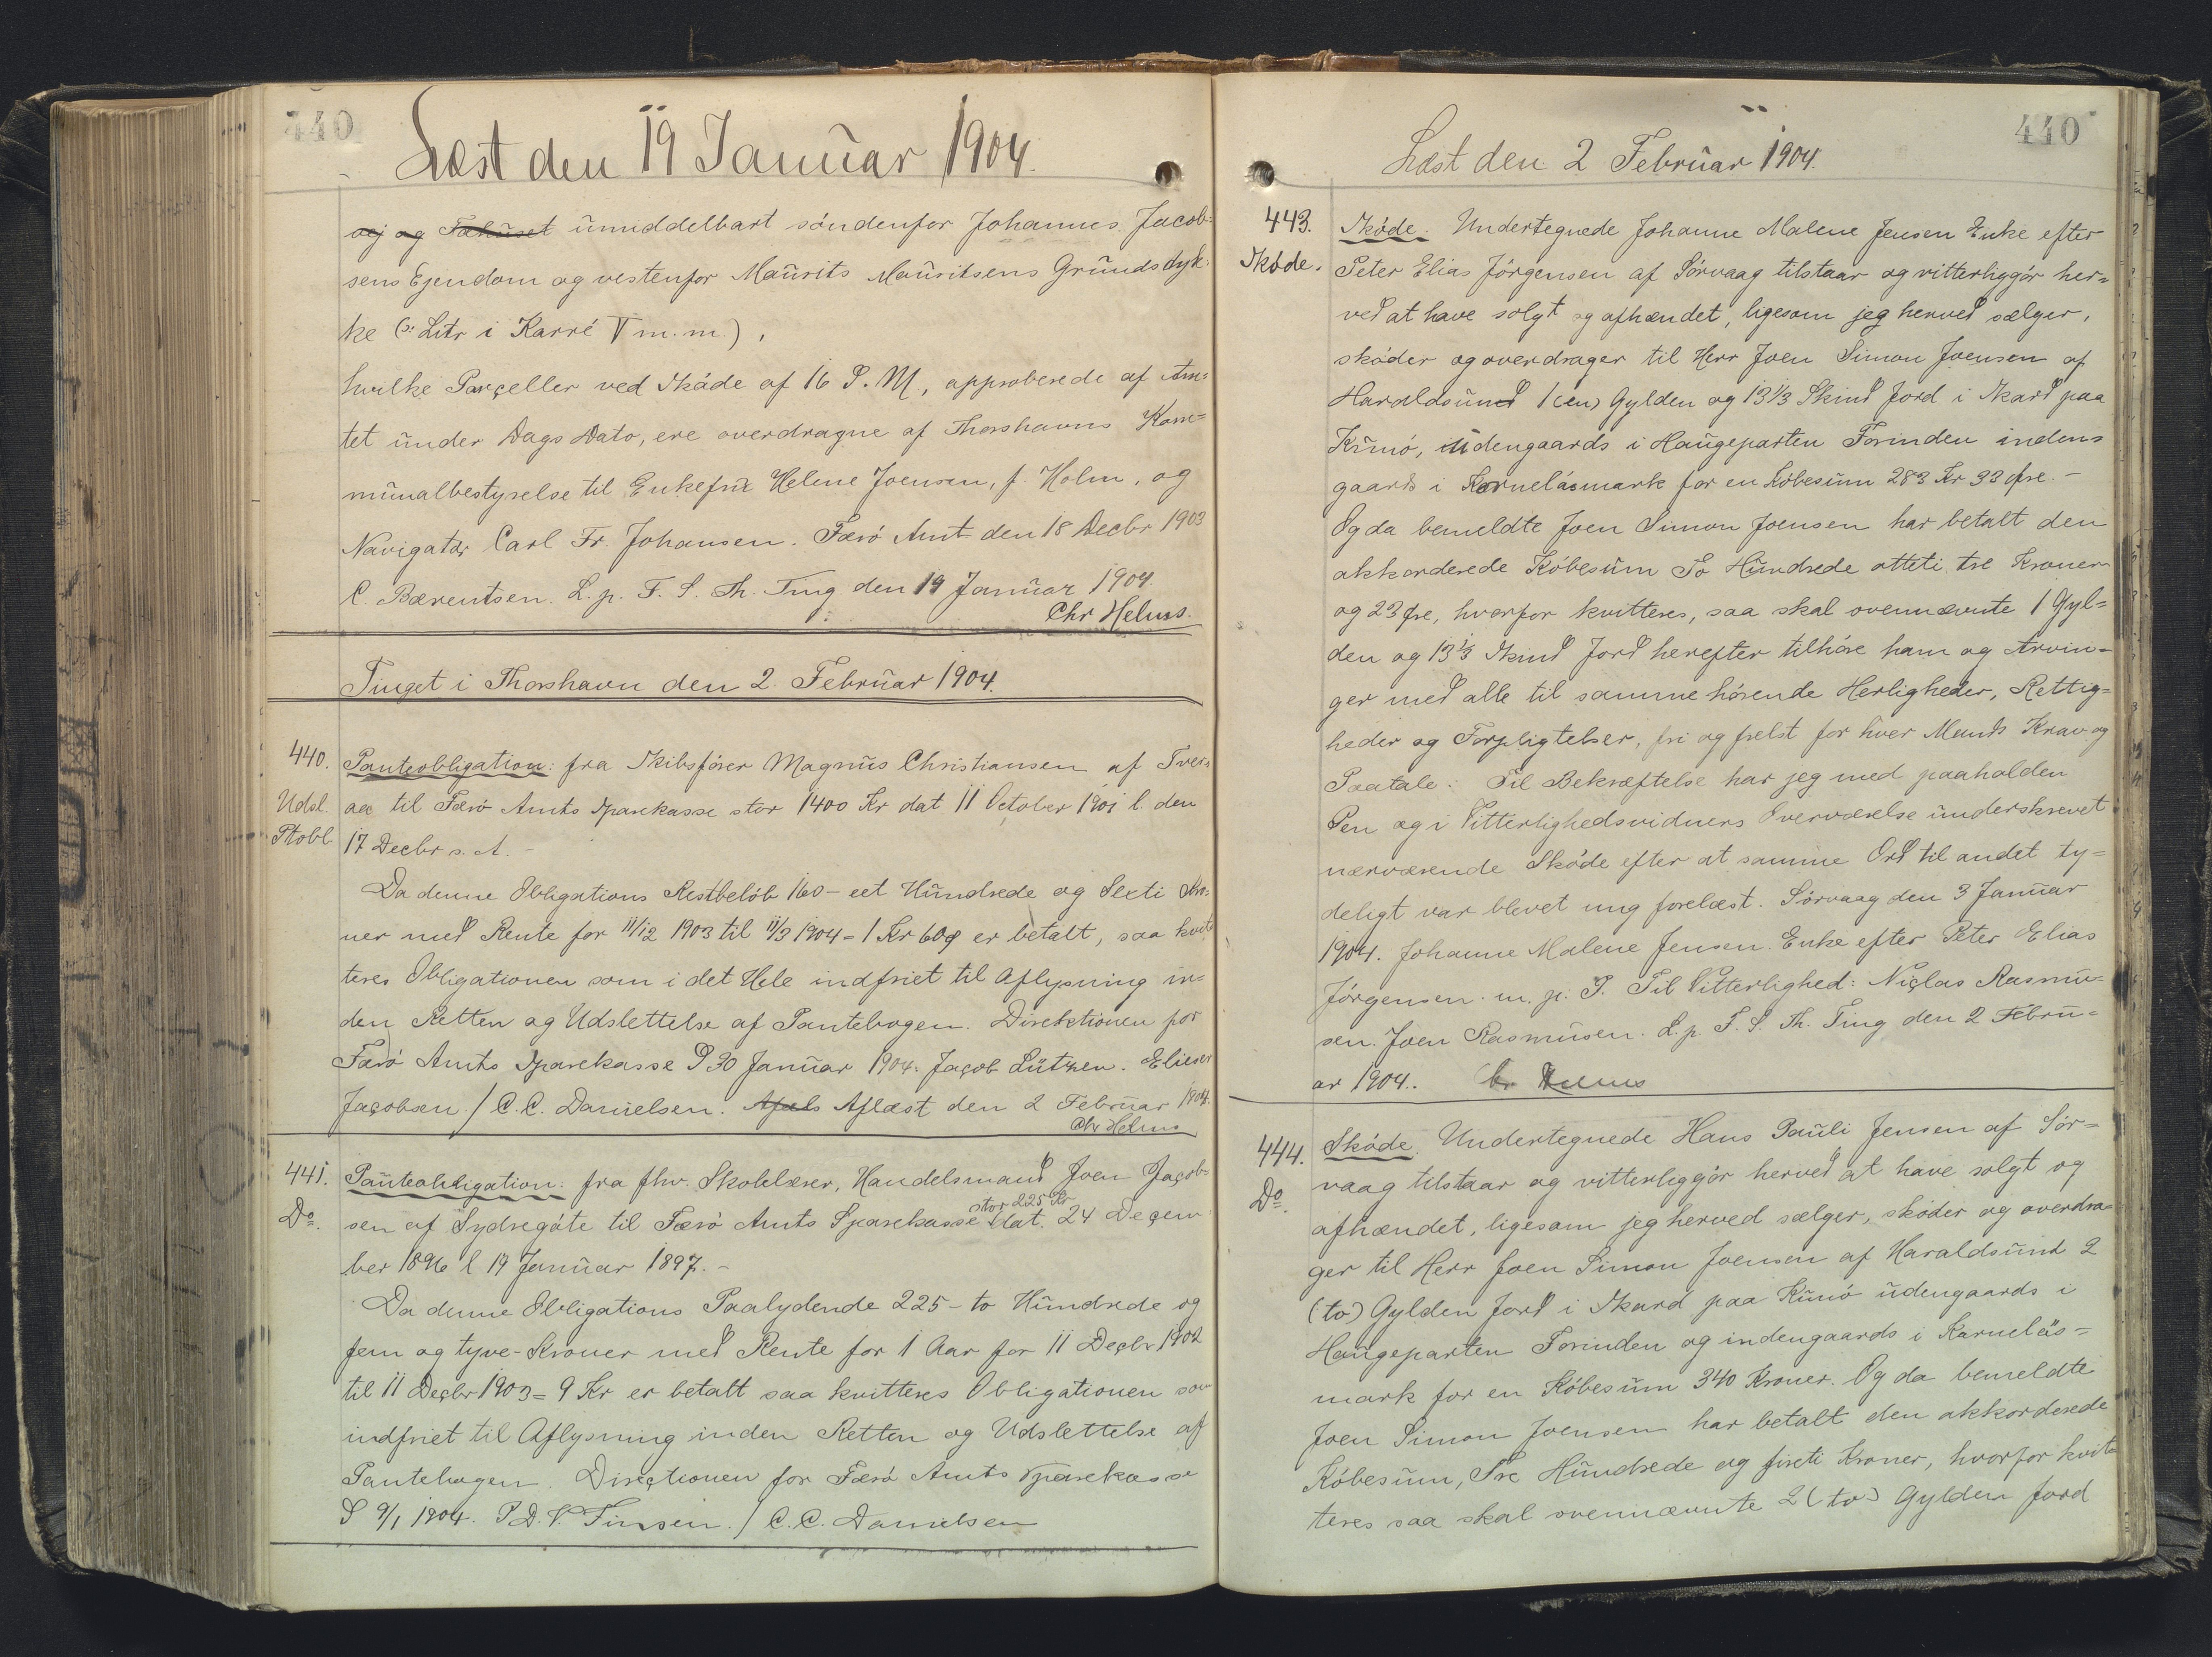 440
Læst den 19 Januar 1904.
vej og Føhuset umiddelbart søndenfor Johannes Jacob=
sens Ejendom og vestenfor Maurits Mauritsens Grundstyk=
ke (ɔ: Litr i Karré V m.m.),
hvilke Parceller ved Skøde af 16 S. M, approberede af Am=
tet under Dags Dato, ere overdragne af Thorshavns Kom=
munalbestyrelse til Enkefru Helene Joensen, f. Holm, og
Navigatør Carl Fr. Johansen. Færø Amt den 18 Decbr 1903
C. Bærentsen. L. p. F. S. Th. Ting den 19 Januar 1904.
Chr Helms.
Tinget i Thorshavn den 2 Februar 1904.
440. Panteobligation: fra Skibsfører Magnus Christiansen af Tver=
Udsl. aa til Færø Amts Sparekasse stor 1400 Kr dat 11 October 1901 l. den
Ptobl 17 Decbr s. A. -
Da denne Obligations Restbeløb 160 - eet Hundrede og Sexti Kro=
ner med Rente for 11/12 1903 til 11/3 1904 = 1 Kr 60 ø er betalt, saa kvit
teres Obligationen som i det Hele indfriet til Aflysning in=
den Retten og Udslettelse af Pantebogen. Direktionen for
Færø Amts Sparekasse D 30 Januar 1904. Jacob Lützen. Elieser
Jacobsen. / C. C. Danielsen. Afæls Aflæst den 2 Februar 1904.
Chr Helms
441. Panteobligation: fra fhv. Skolelærer, Handelsmand Joen Jacob=
stor 225 Kr
Do. sen af Sydregøte til Færø Amts Sparekasse dat. 24 Decem
ber 1896 l 19 Januar 1897. -
Da denne Obligations Paalydende 225 - to Hundrede og
fem og tyve - Kroner med Rente for 1 Aar for 11 Decbr 1902
til 11 Decbr 1903 = 9 Kr er betalt saa kvitteres Obligationen som
indfriet til Aflysning inden Retten og Udslettelse af
Pantebogen. Directionen for Færø Amts Sparekasse
D 9/1 1904. P. D. V. Finsen. / C. C. Danielsen
440
Læst den 2 Februar 1904.
443. Skøde. Undertegnede Johanne Malene Jensen Enke efter
Skøde. Peter Elias Jørgensen af Sørvaag tilstaar og vitterliggør her=
ved at have solgt og afhændet, ligesom jeg herved sælger,
skøder og overdrager til Herr Joen Simon Joensen af
Haraldsund 1 (en) Gylden og 13 1/3 Skind Jord i Skard paa
Kunø, udengaards i Haugeparten Forinden indens
gaards i Karneläsmark for en Købesum 283 Kr 33 Øre. -
Og da bemeldte Joen Simon Joensen har betalt den
akkorderede Købesum To Hundrede otteti tre Kroner
og 23 Øre, hvorfor kvitteres, saa skal ovennævnte 1 Gyl=
den og 13 1/3 Skind Jord herefter tilhøre ham og Arvin=
ger med alle til samme hørende Herligheder, Rettig=
heder og Forpligtelser, fri og frelst for hver Mands Krav og
Paatale. Til Bekræftelse har jeg med paaholden
Pen og i Vitterlighedsvidners Overværelse underskrevet
nærværende Skøde efter at samme Ord til andet ty=
deligt var blevet mig forelæst. Sørvaag den 3 Januar
1904. Johanne Malene Jensen. Enke efter Peter Elias
Jørgensen. m. p. P. Til Vitterlighed: Niclas Rasmu=
sen. Joen Rasmusen. L. p. F. S. Th. Ting den 2 Febru=
ar 1904. Chr Helms
444. Skøde. Undertegnede Hans Pauli Jensen af Sør=
Do. vaag tilstaar og vitterliggør herved at have solgt og
afhændet, ligesom jeg herved sælger, skøder og overdra=
ger til Herr Joen Simon Joensen af Haraldsund 2
(to) Gylden Jord i Skard paa Kunø udengaards i
Haugeparten Forinden og indengaards i Karneläs=
mark for en Købesum 340 Kroner. Og da bemeldte
Joen Simon Joensen har betalt den akkorderede
Købesum, Tre Hundrede og firti Kroner, hvorfor kvit=
teres saa skal ovennævnte 2 (to) Gylden Jord